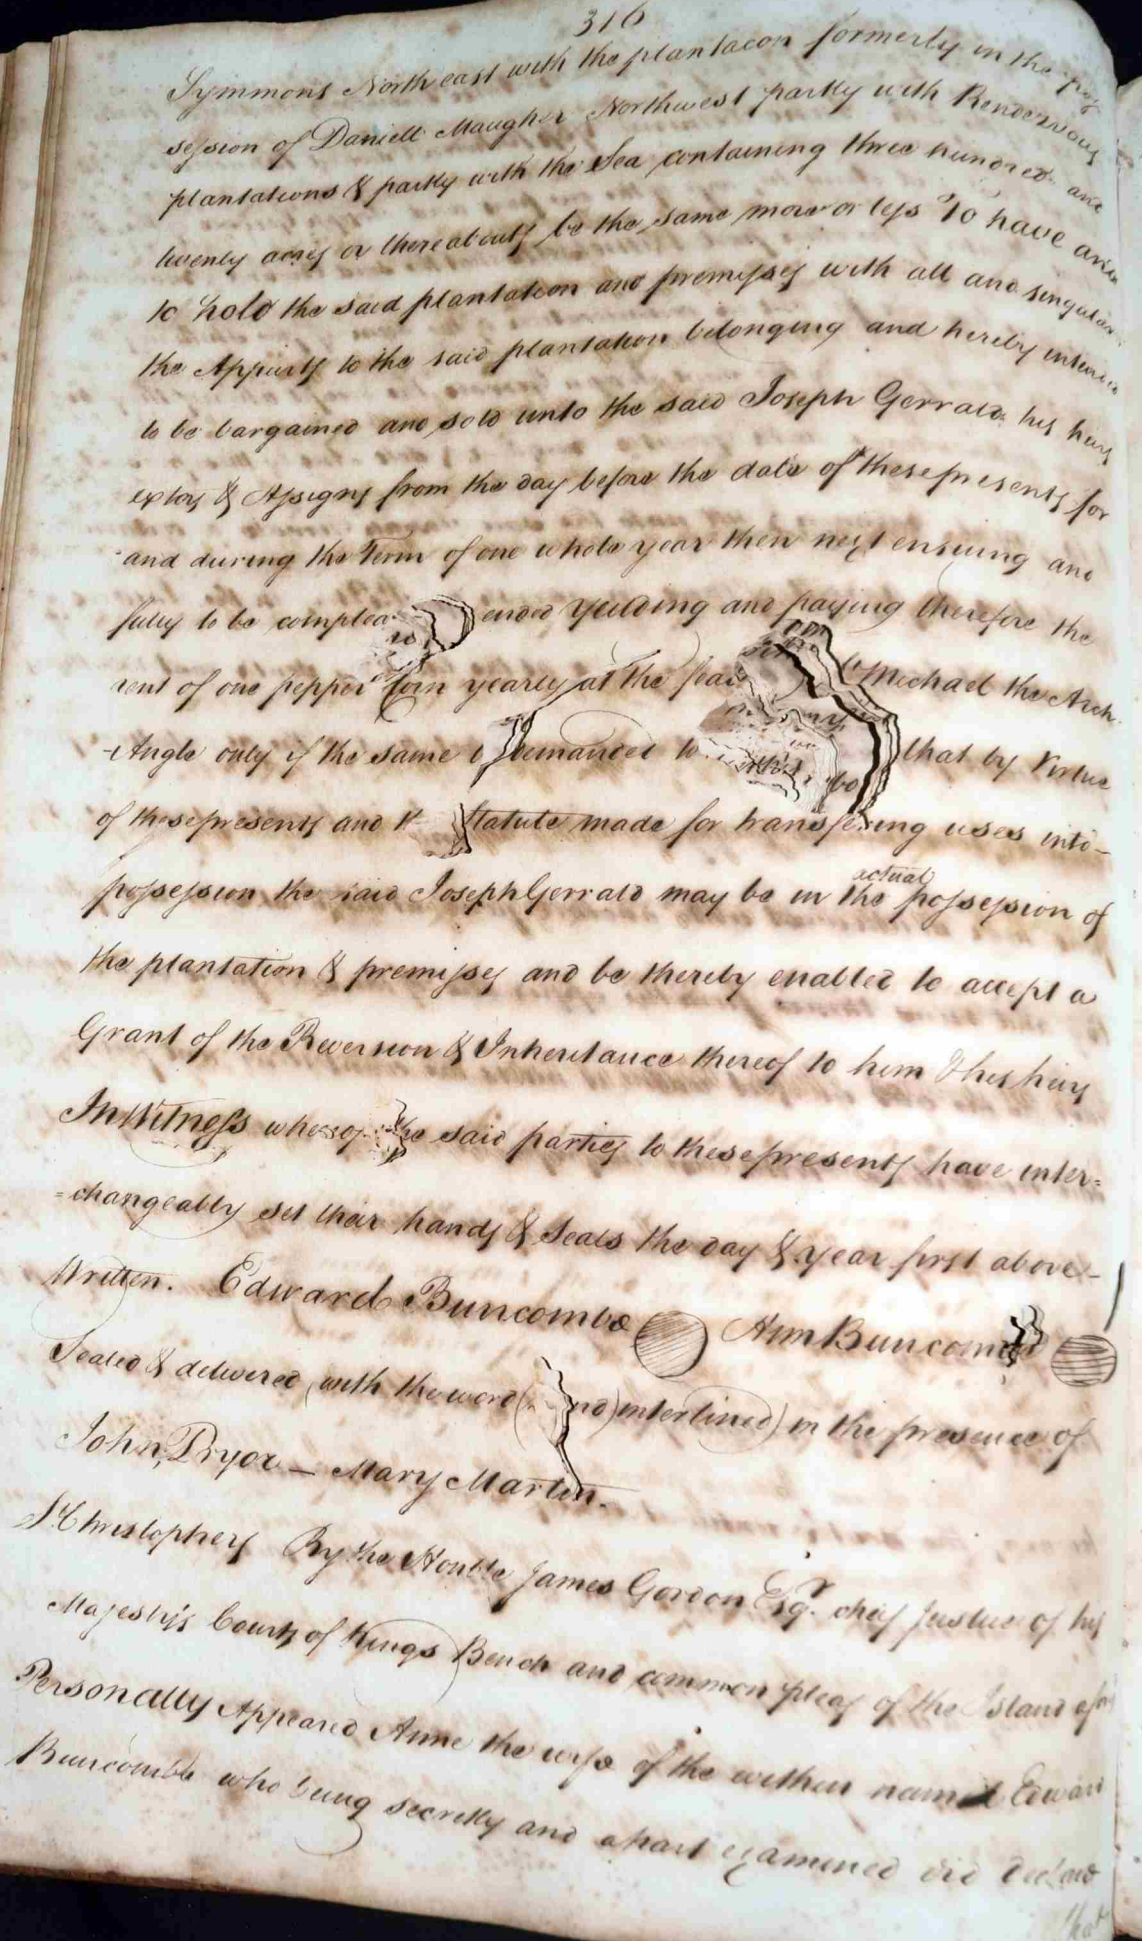 316
Symmons North east with the plantacon formerly in the pos
session of Daniell Maugher Northwest partly with Rendezvous
plantations & partly with the Sea containing three hundred and
twenty acres or thereabouts be the same more or less To have and
to hold the said plantation and premisses with all and singular
the Appurts to the said plantation belonging and hereby intended
to be bargained and sold unto the said Joseph Gerrald his heirs
exõrs & Assigns from the day before the date of these presents for
and during the Term of one whole year then next ensuing and
fully to be complea ended yeilding and paying therefore the
rent of one pepper Corn yearly at the feas Michael the Arch
-Angle only if the same demanded to that by Virtue
of these presents and Statute made for transfering uses into
possession the said Joseph Gerrald may be in the actual possession of
the plantation & premisses and be thereby enabled to accept a
Grant of the Reversion & Inheritance thereof to him & his heirs
In Witness whereof the said parties to these presents have inter=
=changeably set their hands & Seals the day & year first above
Written. Edward Buncombe Ann Buncombe
Sealed & delivered (with the word ( nd) interlined) in the presence of
John Pryor – Mary Martin.
St Christophers By the Honble James Gordon Esqr. chief Justice of his
Majesty's Courts of Kings Bench and common pleas of the Island afors
Personally Appeared Anne the wife of the within named Edward
Buncombe who being secretly and apart examined did declare
that